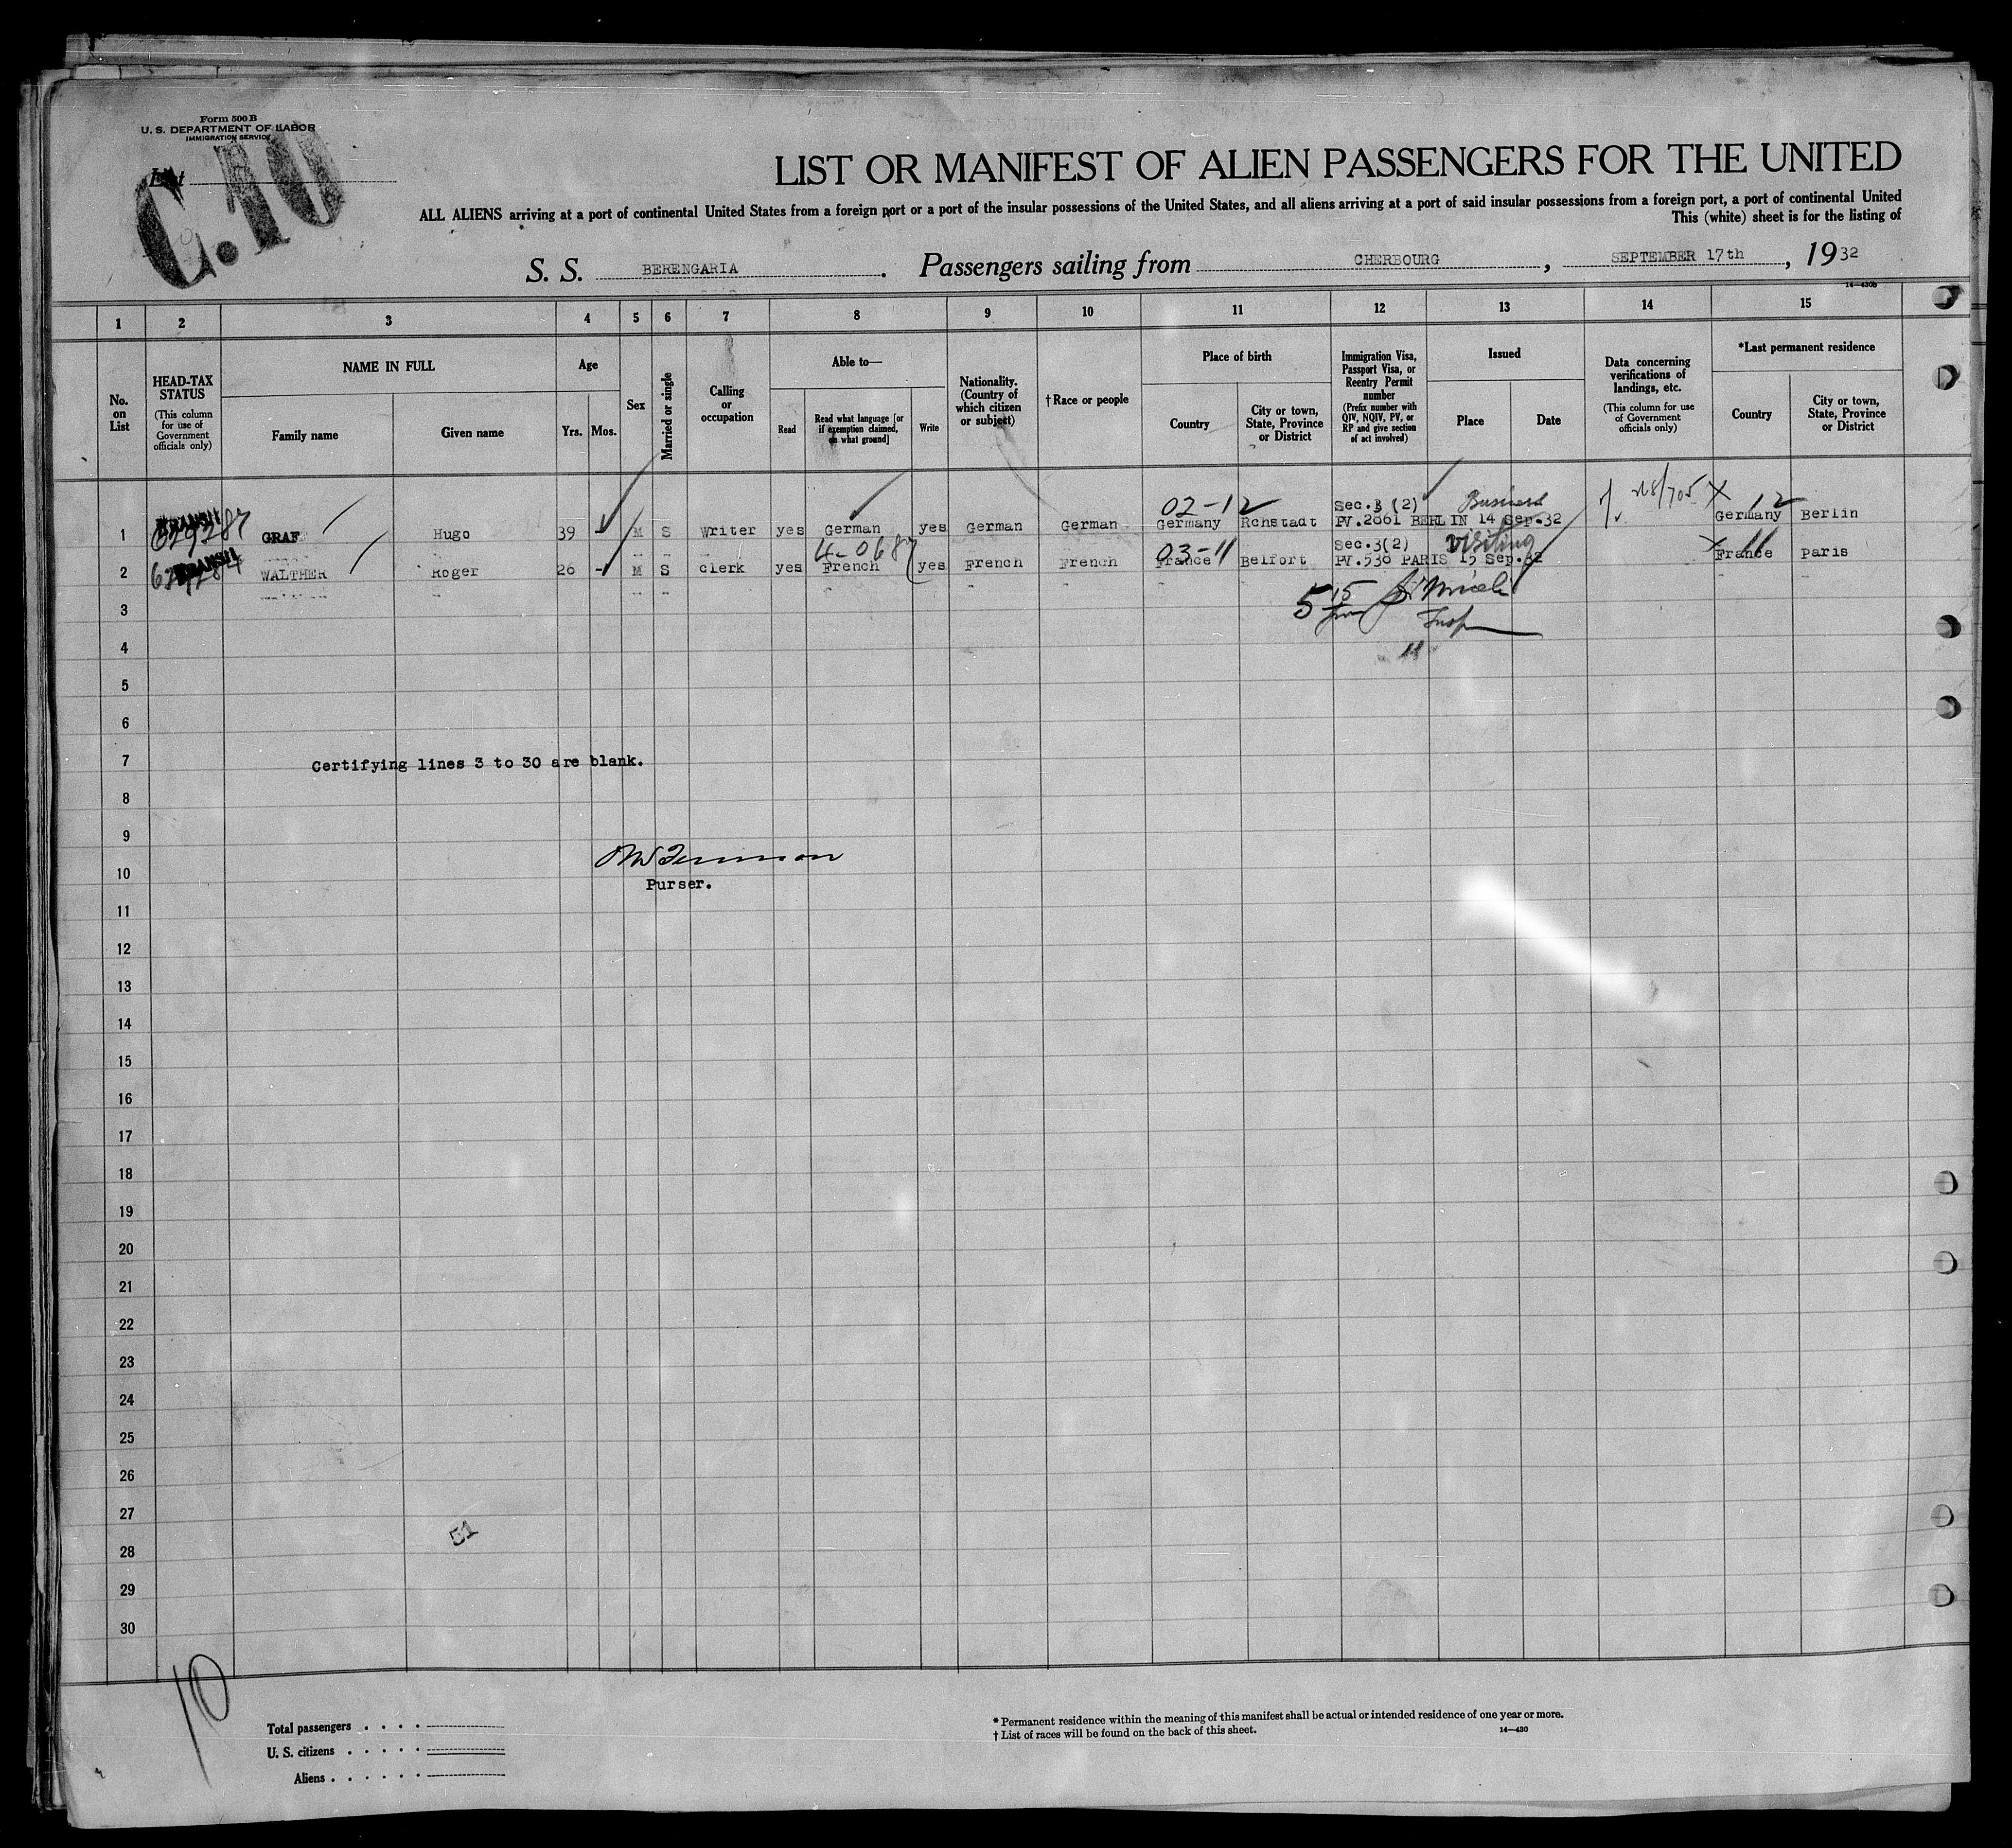 Form 500 B
U. S. DEPARTMENT OF LABOR
IMMIGRATION SERVICE
List
C.10
LIST OR MANIFEST OF ALIEN PASSENGERS FOR THE UNITED
ALL ALIENS arriving at a port of continental United States from a foreign port or a port of the insular possessions of the United States, and all aliens arriving at a port of said insular possessions from a foreign port, a port of continental United
This (white) sheet is for the listing of
S. S. BERENGARIA. Passengers sailing from CHERBOURG, SEPTEMBER 17th, 1932
14—430b
1 2 3 4 5 6 7 8 9 10 11 12 13 14 15
No. on List
HEAD-TAX STATUS (This column for use of Government officials only)
NAME IN FULL
Family name
Given name
Age
Yrs.
Mos.
Sex
Married or single
Calling or occupation
Able to—
Read
Read what language [or if exemption claimed, on what ground]
Write
Nationality. (Country of which citizen or subject)
† Race or people
Place of birth
Country
City or town, State, Province or District
Immigration Visa, Passport Visa, or Reentry Permit number (Prefix number with QIV, NQIV, PV, or RP and give section of act involved)
Issued
Place
Date
Data concerning verifications of landings, etc. (This column for use of Government officials only)
*Last permanent residence
Country
City or town, State, Province or District
02-12 Sec.3 (2) Business 12
1 TRANSIT GRAF Hugo 39 M S Writer yes German yes German German Germany Rchstadt PV.2661 BERLIN 14 Sep.32 Germany Berlin
4-0687 03-11 Sec.3(2) visiting 11
2 TRANSIT WALTHER Roger 26 - M S clerk yes French yes French French France Belfort PV.536 PARIS 15 Sep.32 France Paris
3
Insp
4
11
5
6
7 Certifying lines 3 to 30 are blank.
8
9
10
Purser.
11
12
13
14
15
16
17
18
19
20
21
22
23
24
25
26
27
51
28
29
30
10
Total passengers
U. S. citizens
Aliens
* Permanent residence within the meaning of this manifest shall be actual or intended residence of one year or more.
† List of races will be found on the back of this sheet.
14—430